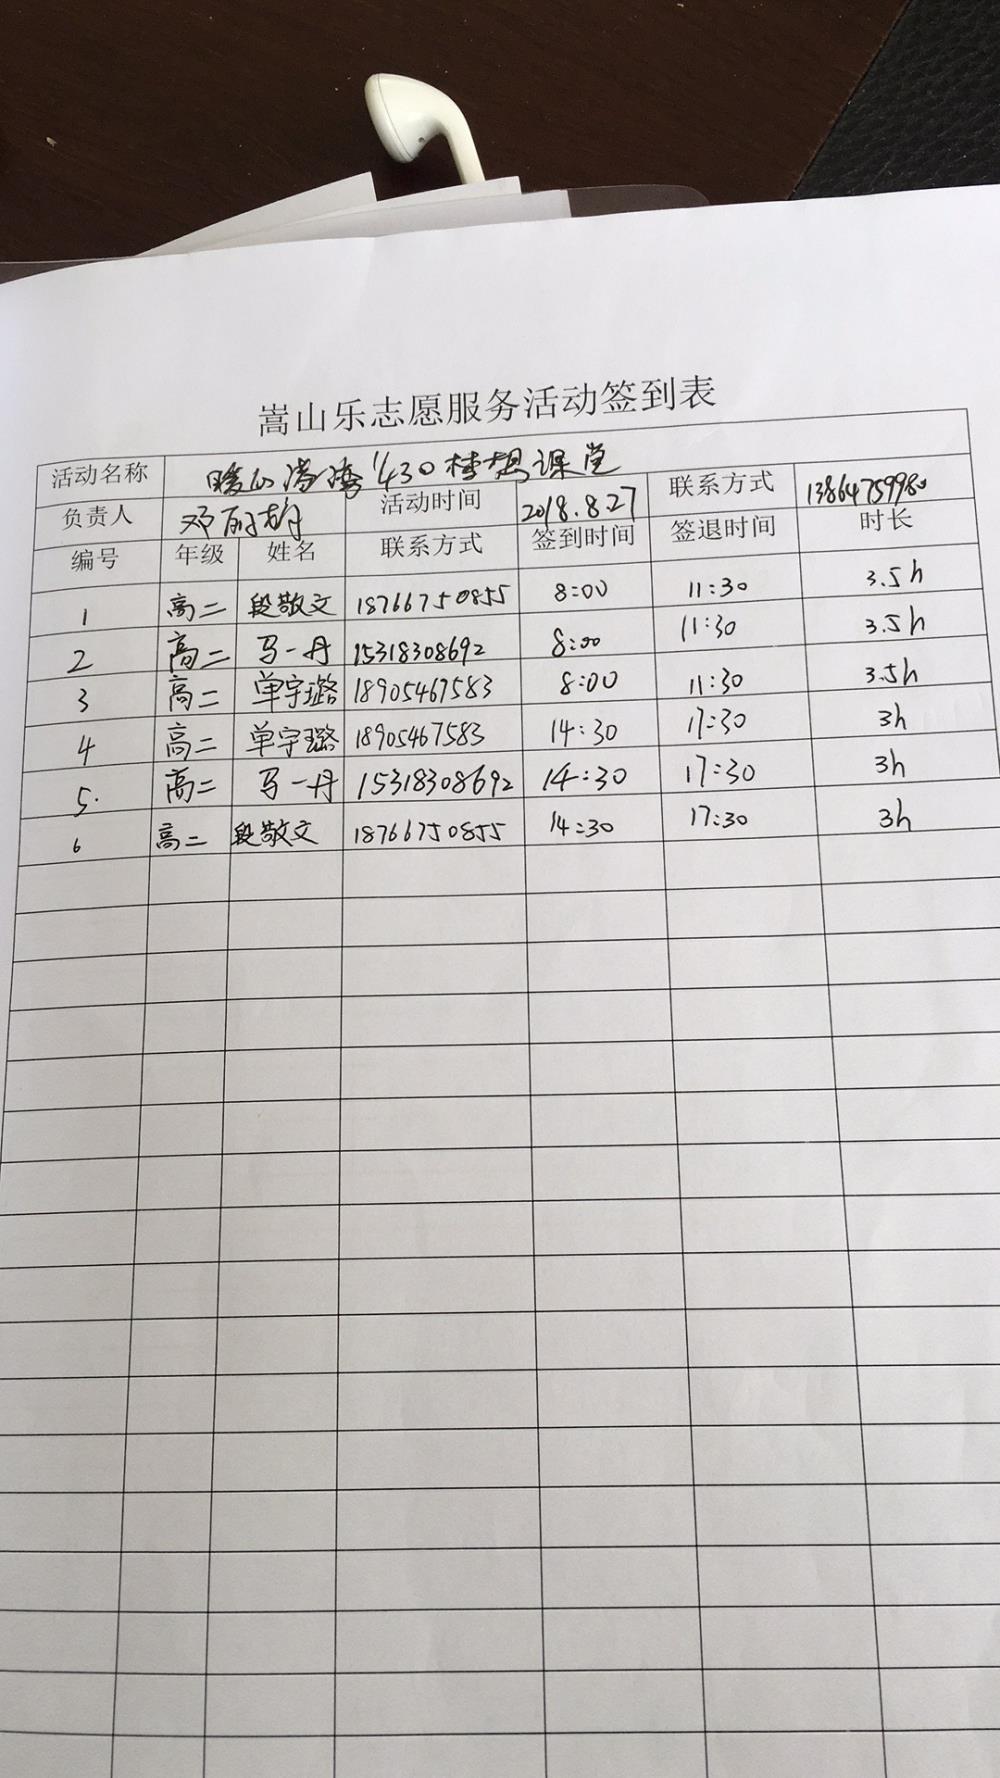 嵩山乐志愿服务活动签到表
活动名称 暖心湾湾“430梦想课堂
负责人 邓 活动时间 2018.8.27 联系方式 13864759980
编号 年级 姓名 联系方式 签到时间 签退时间 时长
1 高二 段敬文 18766750855 8:00 11:30 3.5h
2 高二 马一丹 15318308692 8:00 11:30 3.5h
3 高二 单宇璐 18905467583 8:00 11:30 3.5h
4 高二 单宇璐 18905467583 14:30 17:30 3h
5. 高二 马一丹 15318308692 14:30 17:30 3h
6 高二 段敬文 18766750855 14:30 17:30 3h